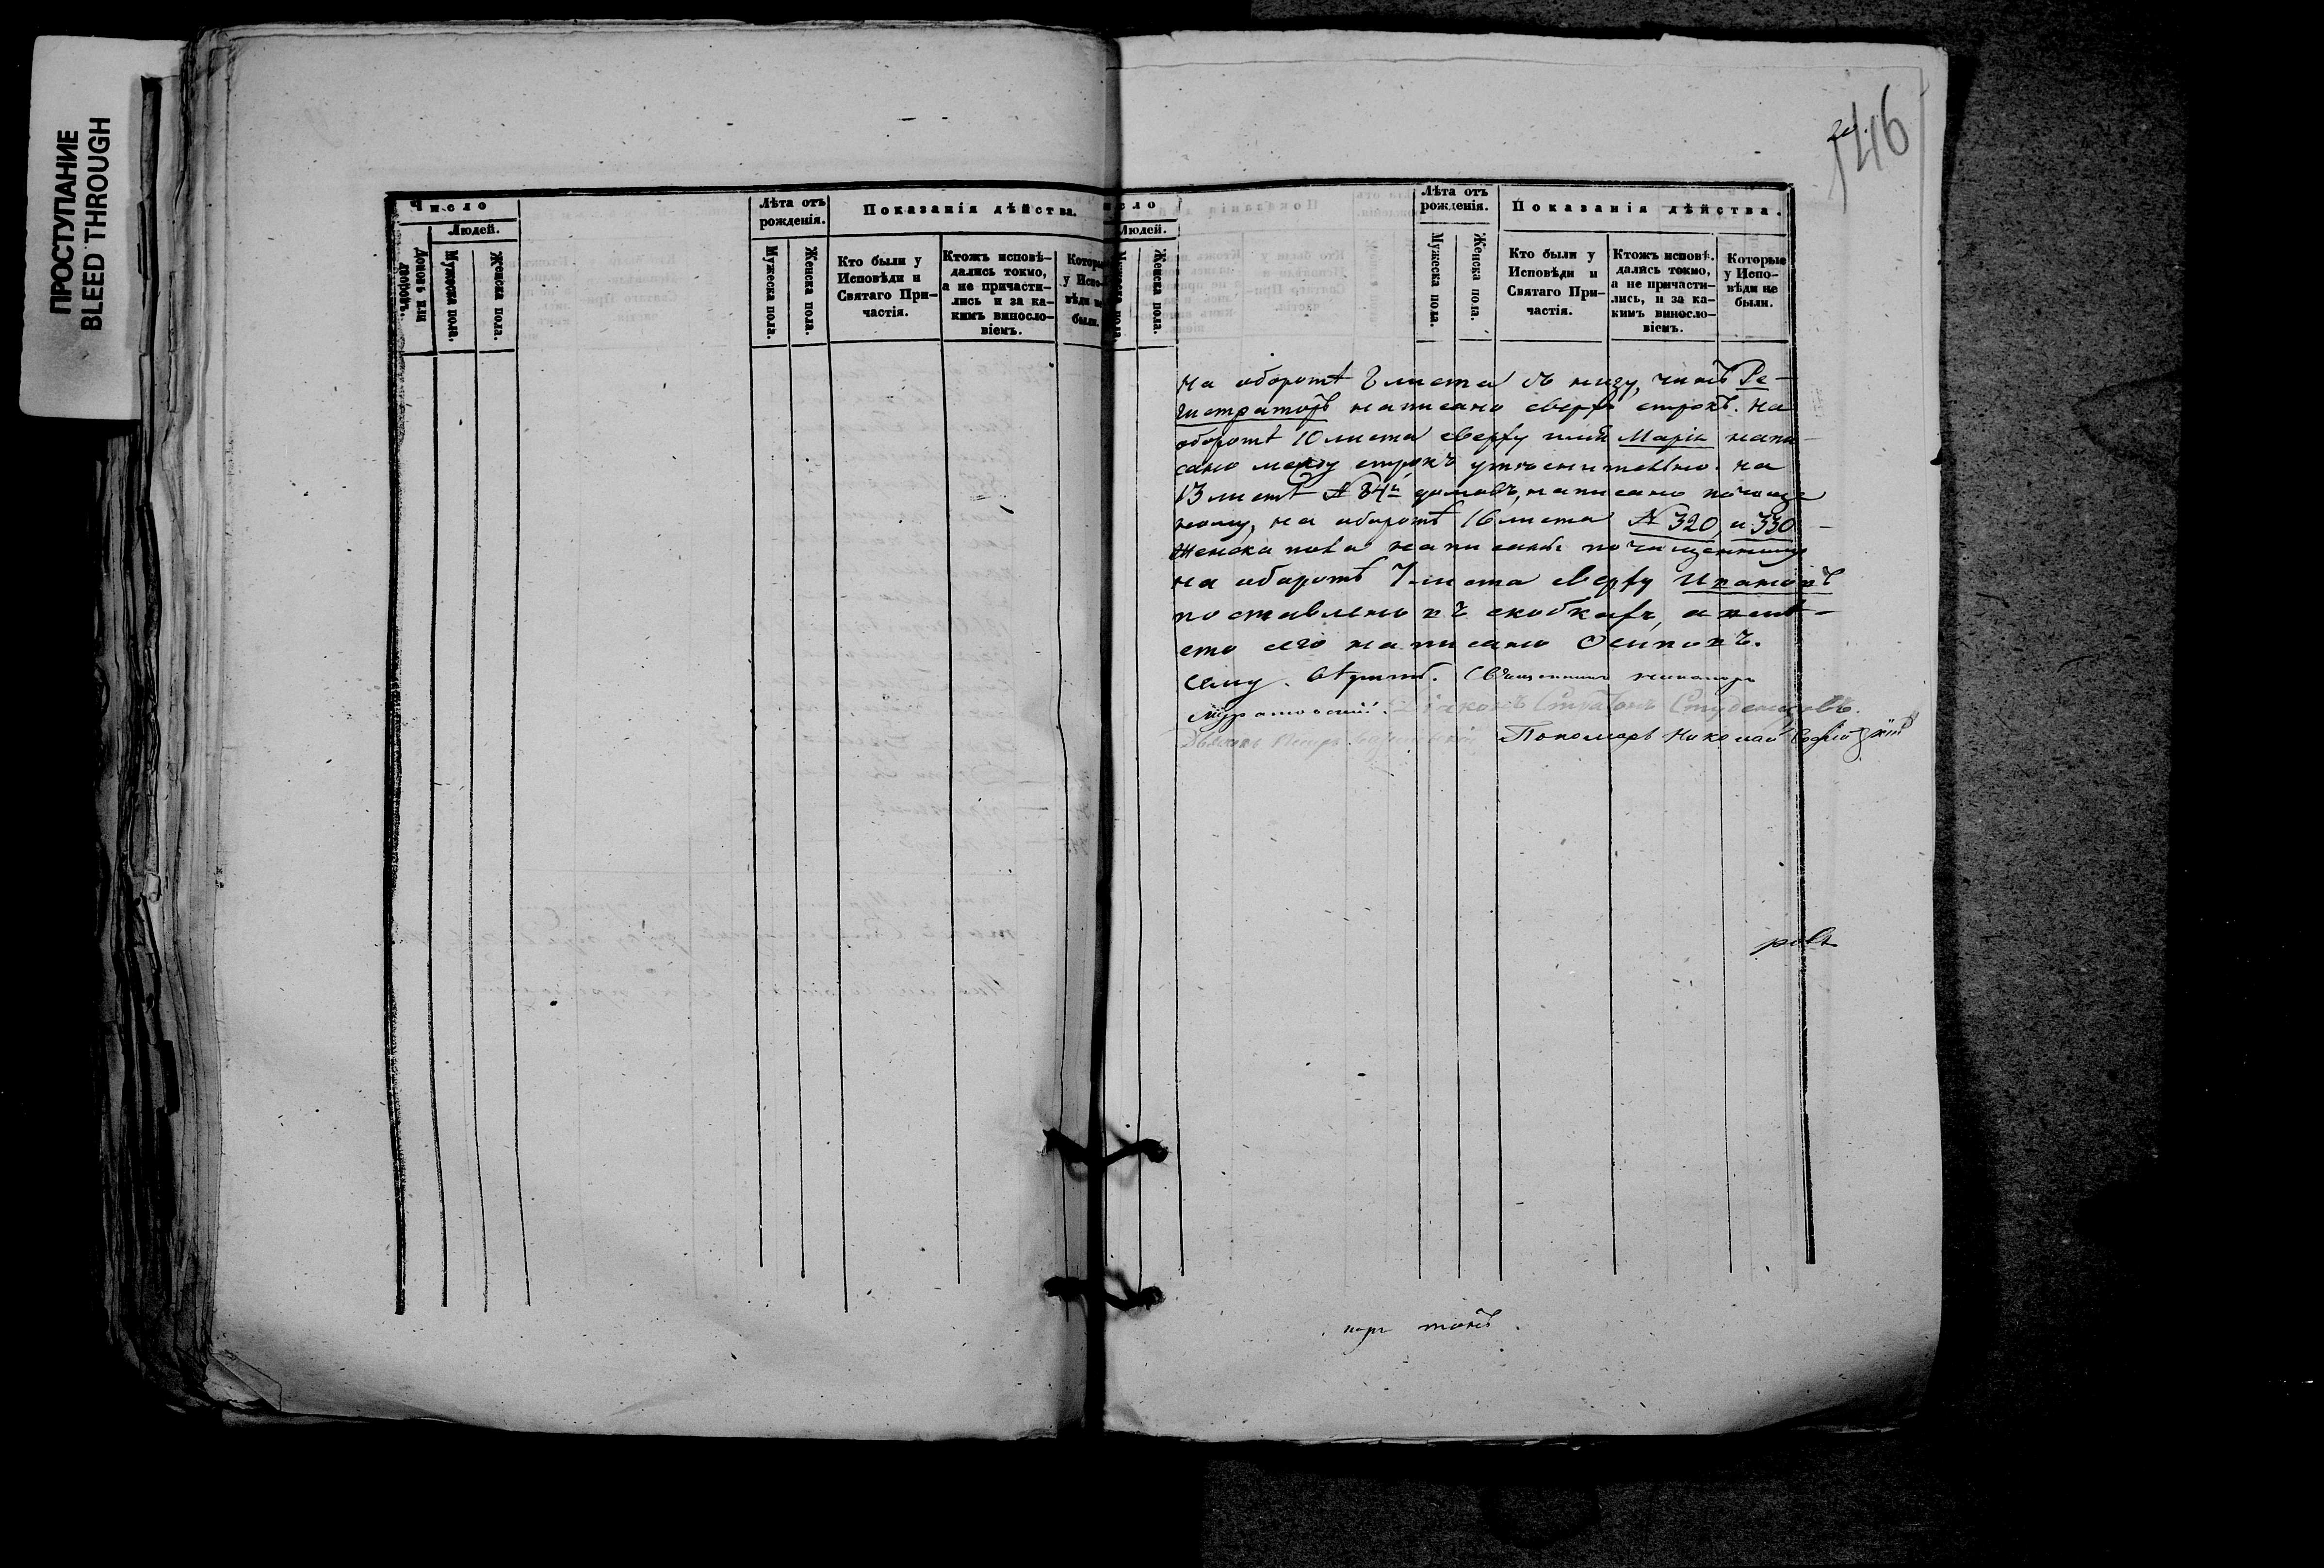 ПРОСТУПАНИЕ
BLEED THROUGH
146
Число
Людей.
Домовъ или дворовъ.
Мужеска пола.
Женска пола.
Лѣта отъ рожденія.
Мужеска пола.
Женска пола.
Показанія дѣйства.
Кто были у
Исповѣди и
Святаго При-
частія.
Ктожъ исповѣ-
дались токмо,
а не причасти-
лись и за ка-
кимъ винословіемъ.
Которые
у Испо-
вѣди не
были.
Людей.
Женска пола.
Лѣта отъ
рожденія.
Мужеска пола.
Женска пола.
Показанія дѣйства.
Кто были у
Исповѣди и
Святаго При-
частія.
Ктожъ исповѣ-
дались токмо,
а не причасти-
лись, и за ка-
кимъ винословіемъ.
Которые
у Испо-
вѣди не
были.
на оборотѣ 8 листа въ низу, чинъ Ре-
гистраторъ написано сверхъ строкъ. На
оборотѣ 10 листа сверху имя Марія напи-
сано между строкъ утѣснительно. на
13 листѣ № 84й домовъ, написано по чище
ному, на оборотѣ 16 листа № 320, и 330
Женска пола написаны по чищенному
на оборотѣ 7 листа сверху Ипатовъ
поставлено въ скобкахъ, а вмѣ-
сто его написано Осиповъ.
Священникъ
Діаконъ Стратонъ Студенцовъ.
Пономарь Николай